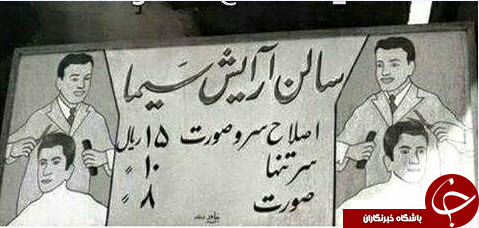 سالن آرایش سیما
اصلاح سر و صورت ۱۵ ریال
سر تنها ۱۰ "
صورت ۸ "
باشگاه خبرنگاران